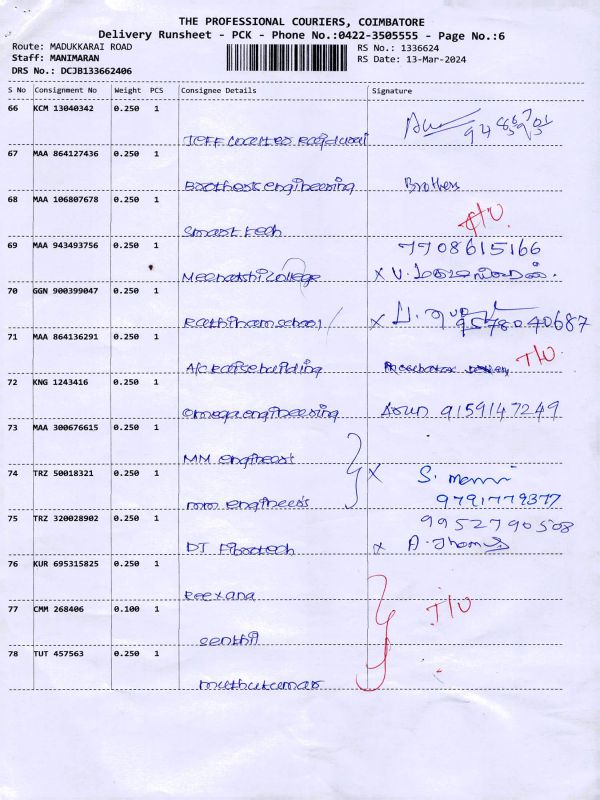 THE PROFESSIONAL COURIERS, COIMBATORE
Delivery Runsheet - PCK - Phone No.:0422-3505555 - Page No.:6
Route: MADUKKARAI ROAD
RS No.: 1336624
Staff: MANIMARAN
RS Date: 13-Mar-2024
DRS No.: DCJB133662406
S No Consignment No Weight PCS Consignee Details Signature
66 KCM 13040342 0.250 1
67 MAA 864127436 0.250 1
Brothers engineering Brothers
68 MAA 106807678 0.250 1
Smart tech T/U
69 MAA 943493756 0.250 1 7708615166
Meenakshi College X V.
70 GGN 900399047 0.250 1
Rathinam school X 9578040687
71 MAA 864136291 0.250 1
A/c Raise building T/U
72 KNG 1243416 0.250 1
Omega engineering Arun 9159147249
73 MAA 300676615 0.250 1
MM engineers
74 TRZ 50018321 0.250 1 X S. mani
mm engineers 9791779377
75 TRZ 320028902 0.250 1 9952790508
DJ Fibrotech X A. Thomas
76 KUR 695315825 0.250 1
Reexana
77 CMM 268406 0.100 1 T/U
Senthil
78 TUT 457563 0.250 1
muthukumar